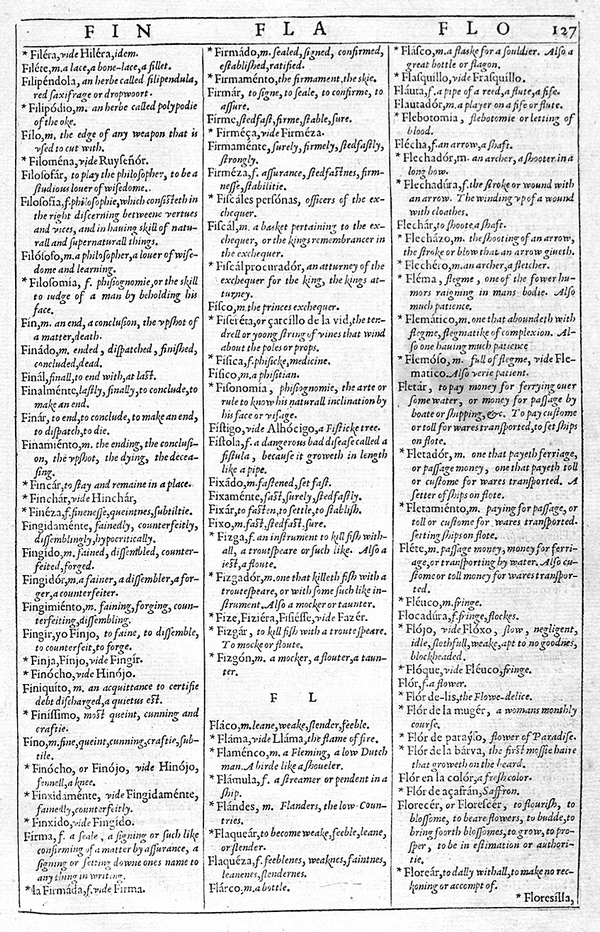 FIN FLA FLO 127
* Filéra, vide Hiléra, idem.
Filéte, m. a lace, a bone-lace, a fillet.
Filipéndola, an herbe called filipendula,
red saxifrage or dropwoort.
* Filipódio, m. an herbe called polypodie
of the oke.
Filo, m. the edge of any weapon that is
vsed to cut with.
* Filoména, vide Ruyseñór.
Filosofár, to play the philosopher, to be a
studious louer of wisedome.
Filosofía, f. philosophie, which consisteth in
the right discerning betweene vertues
and vices, and in hauing skill of natu-
rall and supernaturall things.
Filósofo, m. a philosopher, a louer of wise-
dome and learning.
* Filosomía, f. phisiognomie, or the skill
to iudge of a man by beholding his
face.
Fin, m. an end, a conclusion, the vpshot of
a matter, death.
Finádo, m. ended, dispatched, finished,
concluded, dead.
Finál, finall, to end with, at last.
Finalménte, lastly, finally, to conclude, to
make an end.
Finár, to end, to conclude, to make an end,
to dispatch, to die.
Finamiénto, m. the ending, the conclusi-
on, the vpshot, the dying, the decea-
sing.
* Fincár, to stay and remaine in a place.
* Finchár, vide Hinchár,
* Finéza, f. finenesse, queintnes, subtiltie.
Fingidaménte, fainedly, counterfeitly,
dissemblingly, hypocritically.
Fingido, m. fained, dissembled, counter-
feited, forged.
Fingidór, m. a fainer, a dissembler, a for-
ger, a counterfeiter.
Fingimiénto, m. faining, forging, coun-
terfeiting, dissembling.
Fingir, yo Finjo, to faine, to dissemble,
to counterfeit, to forge.
* Finja, Finjo, vide Fingír.
* Finócho, vide Hinójo.
Finiquíto, m. an acquittance to certifie
debt discharged, a quietus est.
* Finíssimo, most queint, cunning and
craftie.
Fíno, m. fine, queint, cunning, craftie, sub-
tile.
* Finócho, or Finójo, vide Hinójo,
fennell, a knee.
* Finxidaménte, vide Fingidaménte,
fainedly, counterfeitly.
* Finxído, vide Fingído.
Firma, f. a seale, a signing or such like
confirming of a matter by assurance, a
signing or setting downe ones name to
any thing in writing.
* la Firmáda, f. vide Firma.
* Firmádo, m. sealed, signed, confirmed,
established, ratified.
* Firmaménto, the firmament, the skie.
Firmár, to signe, to seale, to confirme, to
assure.
Firme, stedfast, firme, stable, sure.
* Firméça, vide Firméza.
Firmaménte, surely, firmely, stedfastly,
strongly.
Firméza, f. assurance, stedfastnes, firm-
nesse, stabilitie.
* Fiscáles persónas, officers of the ex-
chequer.
Fiscál, m. a basket pertaining to the ex-
chequer, or the kings remembrancer in
the exchequer.
* Fiscál procuradór, an atturney of the
exchequer for the king, the kings at-
turney.
Fisco, m. the princes exchequer.
* Fiseréta, or çarcillo de la vid, the ten-
drell or yoong string of vines that wind
about the poles or props.
* Fisica, f. phisicke, medicine.
Fisico, m. a phisitian.
* Fisonomía, phisiognomie, the arte or
rule to know his naturall inclination by
his face or visage.
Fístigo, vide Alhócigo, a Fisticke tree.
Fístola, f. a dangerous bad disease called a
fistula, because it groweth in length
like a pipe.
Fixádo, m. fastened, set fast.
Fixaménte, fast, surely, stedfastly.
Fixár, to fasten, to settle, to stablish.
Fixo, m. fast, stedfast, sure.
* Fizga, f. an instrument to kill fish with-
all, a troutspeare or such like. Also a
iest, a floute.
* Fizgadór, m. one that killeth fish with a
troutespeare, or with some such like in-
strument. Also a mocker or taunter.
* Fize, Fiziéra, Fisiésse, vide Fazér.
* Fizgár, to kill fish with a troutespeare.
To mocke or floute.
* Fizgón, m. a mocker, a flouter, a taun-
ter.
F L
Fláco, m. leane, weake, slender, feeble.
* Fláma, vide Lláma, the flame of fire.
* Flaménco, m. a Fleming, a low Dutch
man. A birde like a shoueler.
* Flámula, f. a streamer or pendent in a
ship.
* Flándes, m. Flanders, the low Coun-
tries.
* Flaqueár, to become weake, feeble, leane,
or slender.
Flaquéza, f. feeblenes, weaknes, faintnes,
leanenes, slendernes.
Flárco, m. a bottle.
* Flásco, m. a flaske for a souldier. Also a
great bottle or flagon.
* Flasquíllo, vide Frasquíllo.
Fláuta, f. a pipe of a reed, a flute, a fife.
Flautadór, m. a player on a fife or flute.
* Flebotomia, flebotomie or letting of
blood.
Flécha, f. an arrow, a shaft.
* Flechadór, m. an archer, a shooter in a
long bow.
* Flechadúra, f. the stroke or wound with
an arrow. The winding vp of a wound
with cloathes.
Flechár, to shoote a shaft.
* Flecházo, m. the shooting of an arrow,
the stroke or blow that an arrow giueth.
* Flechéro, m. an archer, a fletcher.
* Fléma, flegme, one of the fower hu-
mors raigning in mans bodie. Also
much patience.
* Flemático, m. one that aboundeth with
flegme, flegmatike of complexion. Al-
so one hauing much patience
* Flemóso, m. full of flegme, vide Fle-
matico. Also verie patient.
Fletár, to pay money for ferrying ouer
some water, or money for passage by
boate or shipping, &c. To pay custome
or toll for wares transported, to set ships
on flote.
* Fletadór, m. one that payeth ferriage,
or passage money, one that payeth toll
or custome for wares transported. A
setter of ships on flote.
* Fletamiénto, m. paying for passage, or
toll or custome for wares transported.
setting ships on flote.
Fléte, m. passage money, money for ferri-
age, or transporting by water. Also cu-
stome or toll money for wares transpor-
ted.
* Fléuco, m. fringe.
Flocadúra, f. fringe, flockes.
* Flójo, vide Flóxo, slow, negligent,
idle, slothfull, weake, apt to no goodnes,
blockheaded.
* Flóque, vide Fléuco, fringe.
Flór, f. a flower.
* Flór de-lis, the Flowre-delice.
* Flór de la mugér, a womans monthly
course.
* Flór de paraýso, flower of Paradise.
* Flór de la bárva, the first mossie haire
that groweth on the beard.
Flór en la colór, a fresh color.
* Flór de açafrán, Saffron.
Florecér, or Florescér, to flourish, to
blossome, to beare flowers, to budde, to
bring foorth blossomes, to grow, to pro-
sper, to be in estimation or authori-
tie.
* Floreár, to dally withall, to make no rec-
koning or accompt of.
* Floresílla,